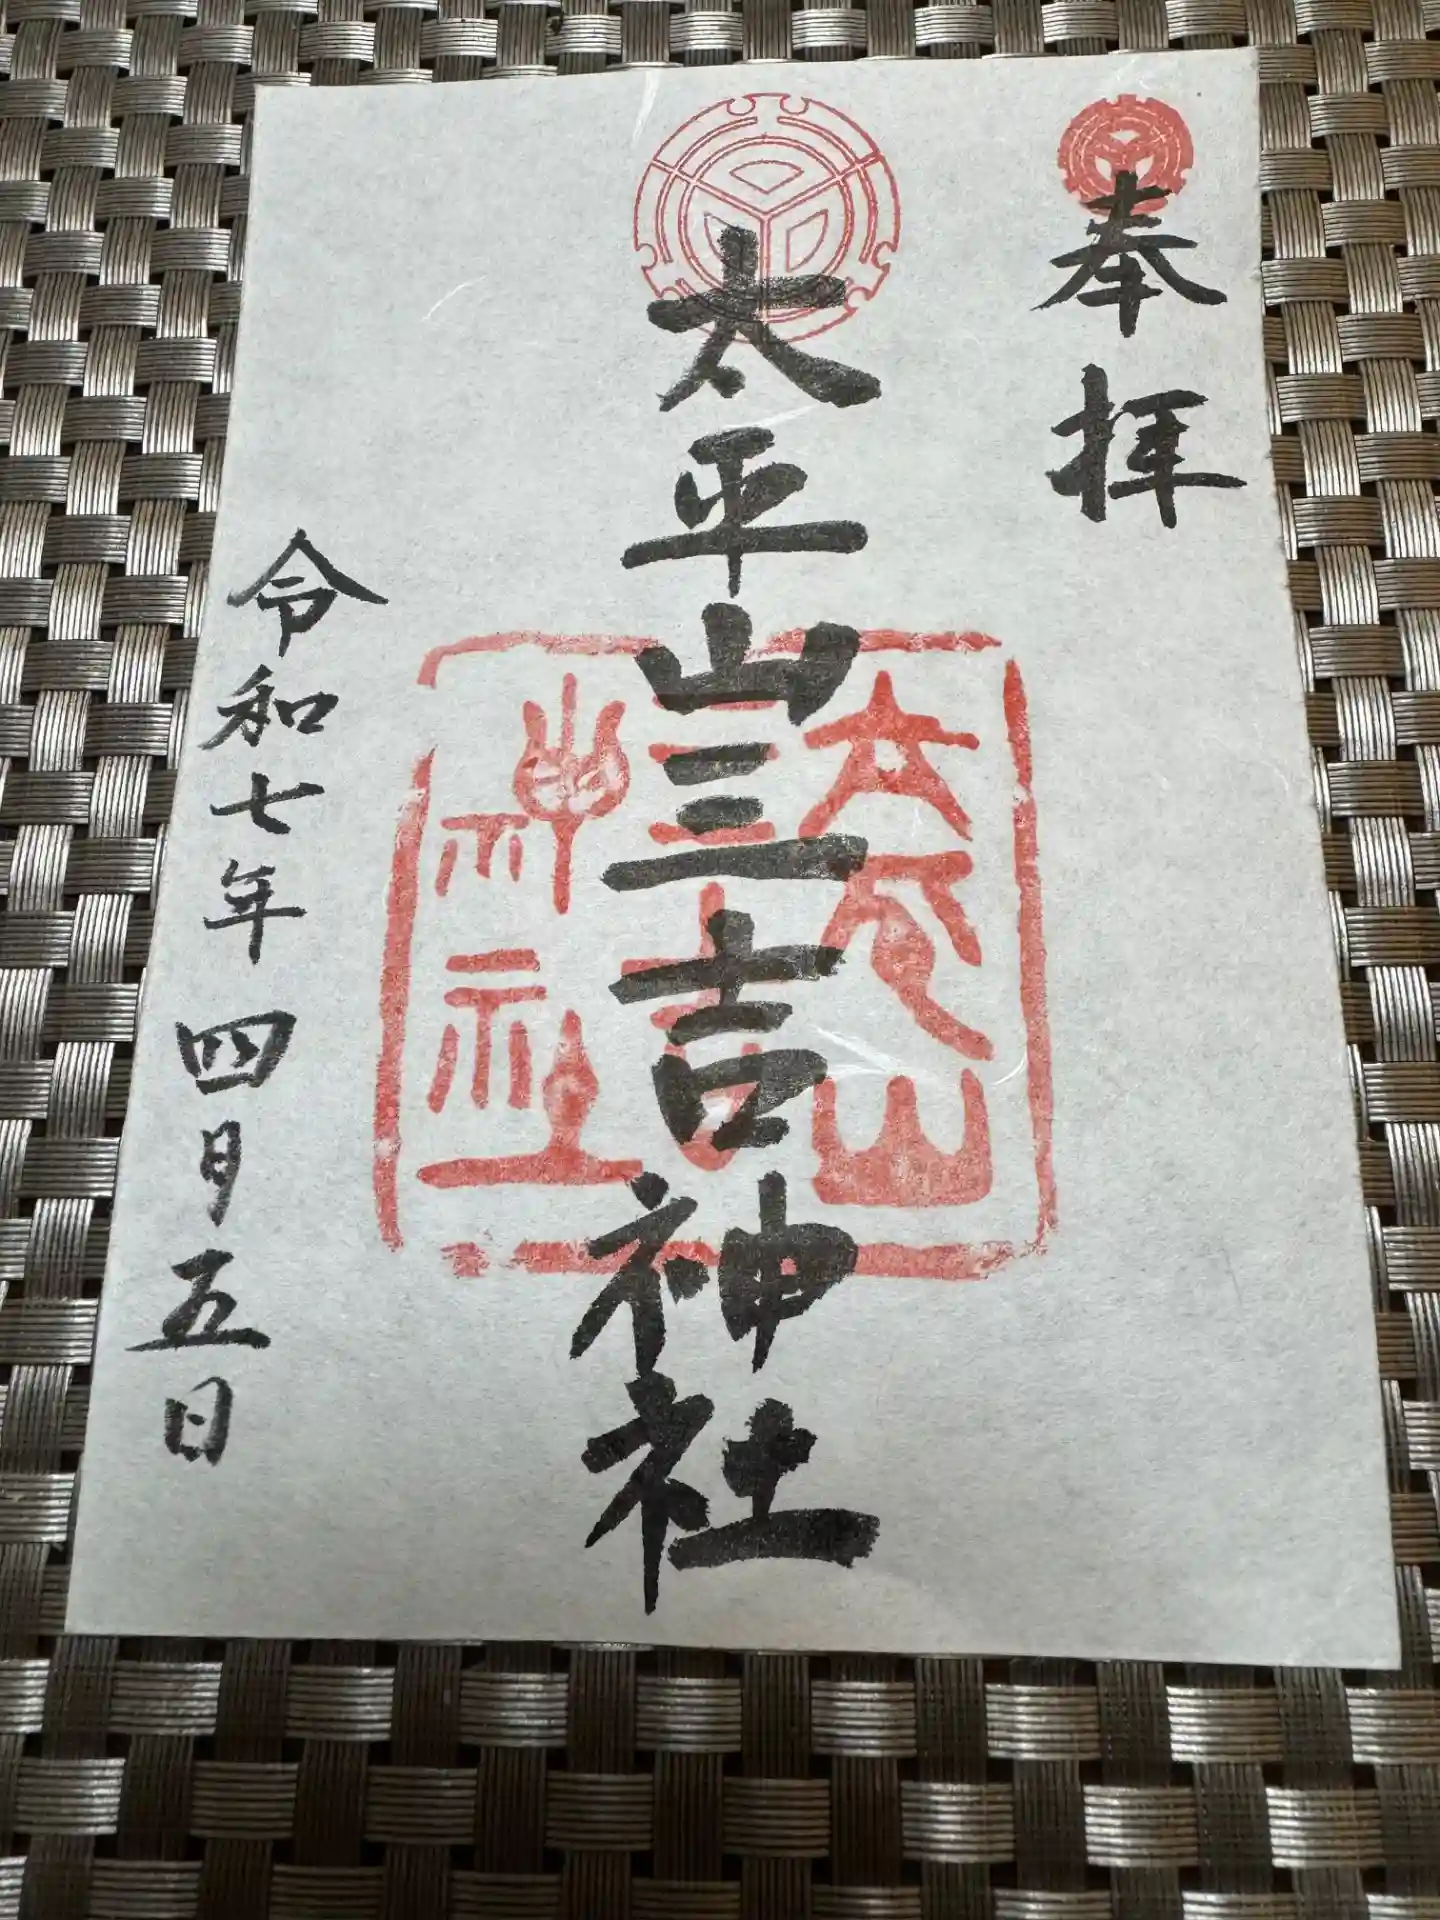 奉拝
太平山三吉神社
太平山
三吉
神社
令和七年四月五日